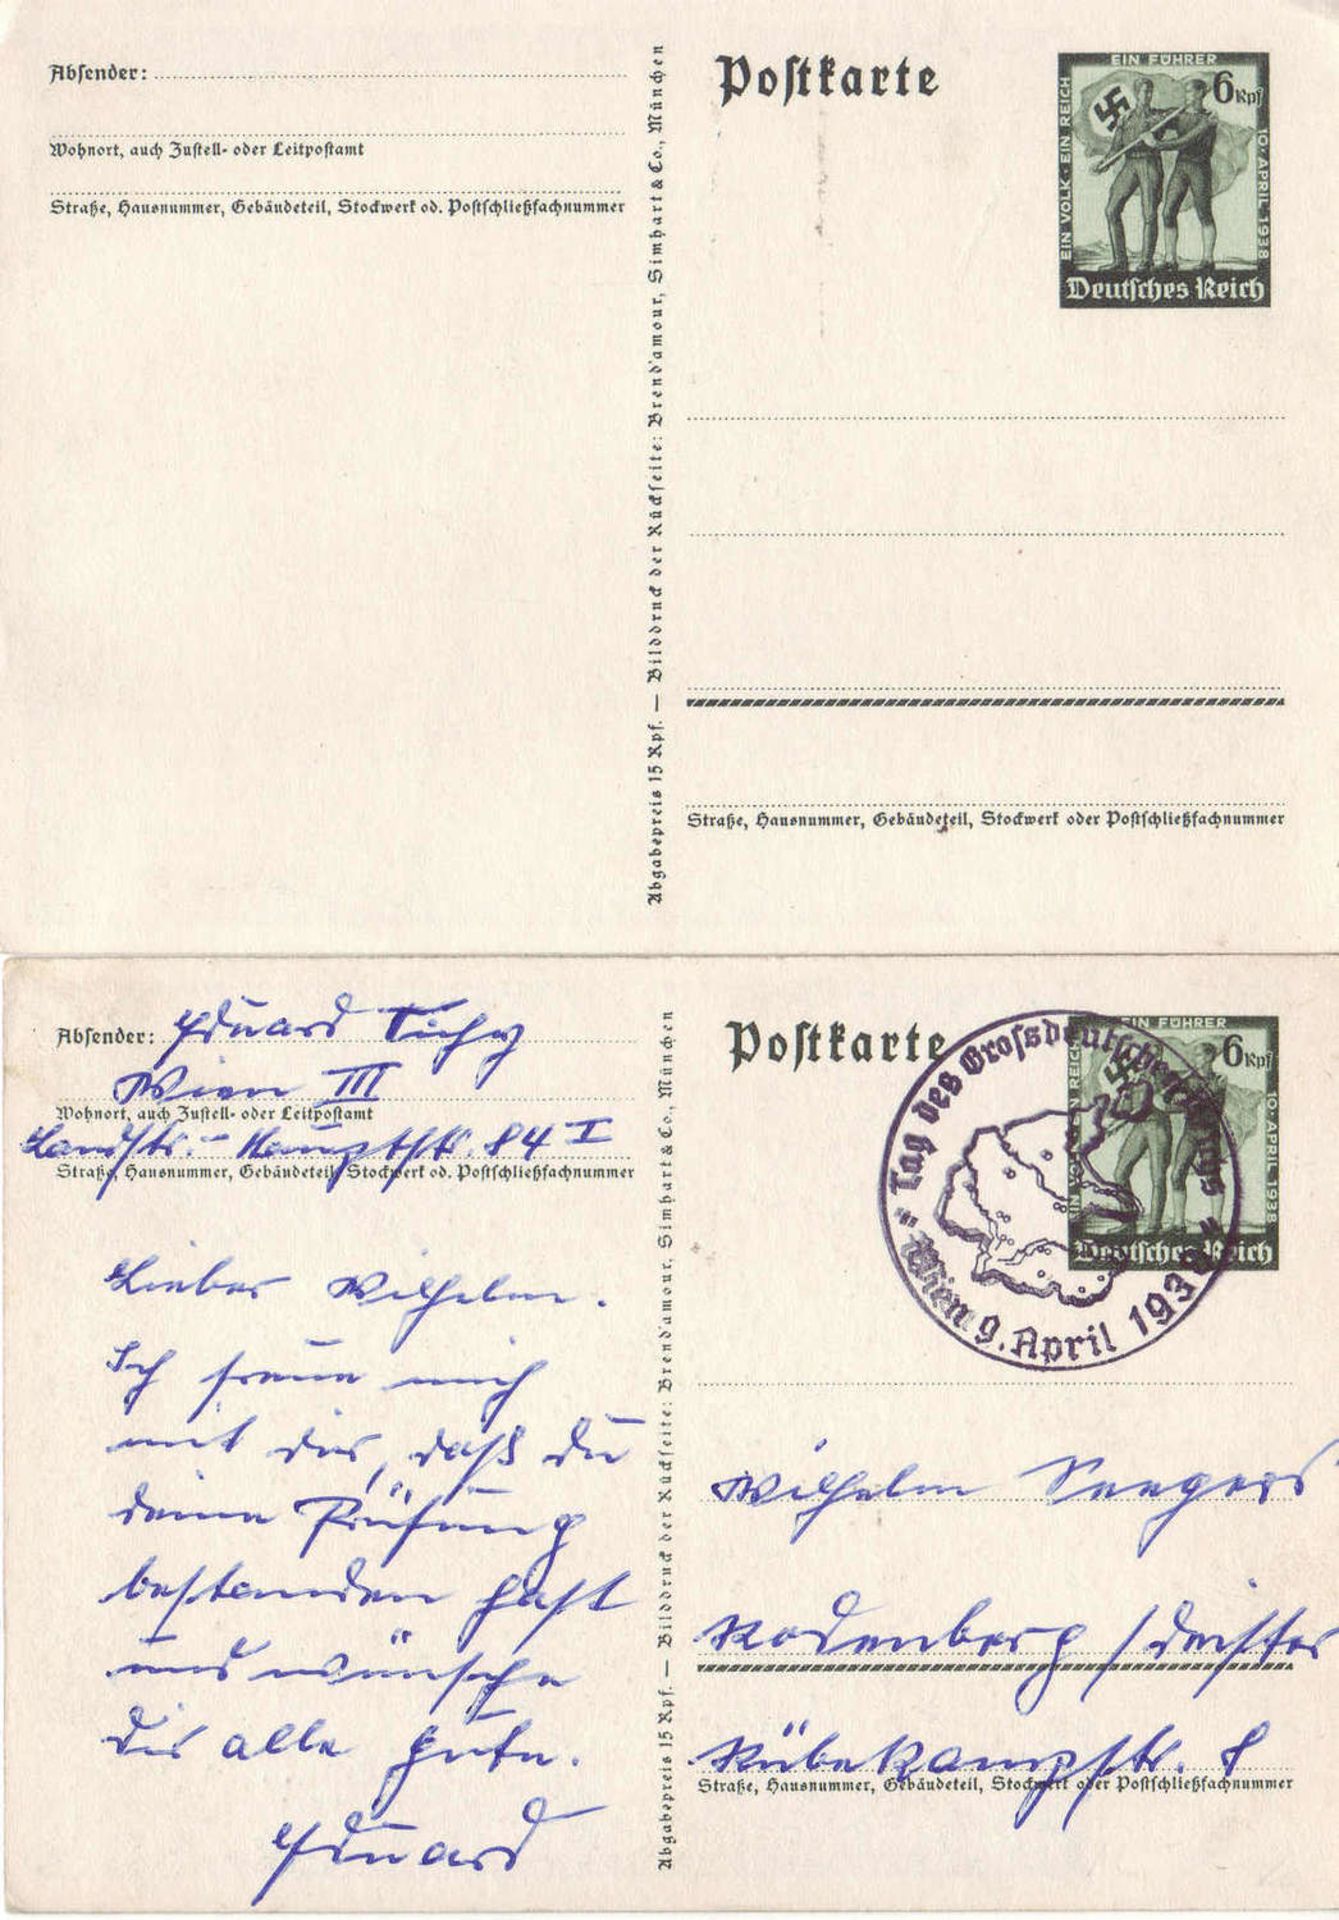 Absender:
Wohnort, auch Zustell- oder Leitpostamt
Straße, Hausnummer, Gebäudeteil, Stockwerk od. Postschließfachnummer
Abgabepreis 15 Rpf. — Bilddruck der Rückseite: Brend'amour, Simhart & Co., München
Postkarte
EIN FÜHRER
EIN VOLK · EIN REICH
6 Rpf
10. APRIL 1938
Deutsches Reich
Straße, Hausnummer, Gebäudeteil, Stockwerk oder Postschließfachnummer
Absender: Eduard Tichy
Wien III
Wohnort, auch Zustell- oder Leitpostamt
Landstr.- Hauptstr. 84 I
Straße, Hausnummer, Gebäudeteil, Stockwerk od. Postschließfachnummer
Lieber Wilhelm.
Ich freue mich
mit dir, daß du
deine Prüfung
bestanden hast
und wünsche
dir alle gute.
Eduard
Abgabepreis 15 Rpf. — Bilddruck der Rückseite: Brend'amour, Simhart & Co., München
Postkarte
EIN FÜHRER
EIN REICH
6 Rpf
10. APRIL 1938
Deutsches Reich
"Tag des Grossdeutschen Reichs"
Wien 9. April 1938
Wilhelm Seegers
Rodenberg / Deister
Rübekampstr. 8
Straße, Hausnummer, Gebäudeteil, Stockwerk oder Postschließfachnummer